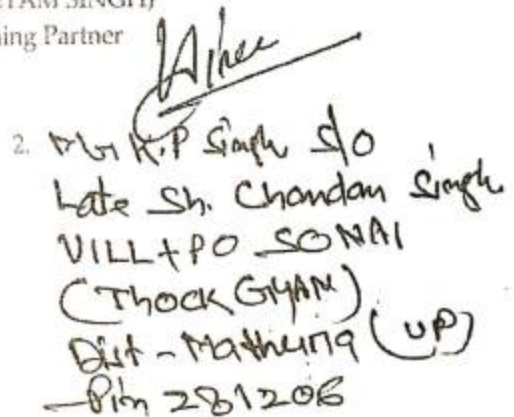 TAM SINGH)
ing Partner
2. Mr K.P Singh S/O
Late Sh. Chandan Singh
VILL + PO SONAI
(THOCK GYAN)
Dist - Mathura (UP)
- Pin 281206